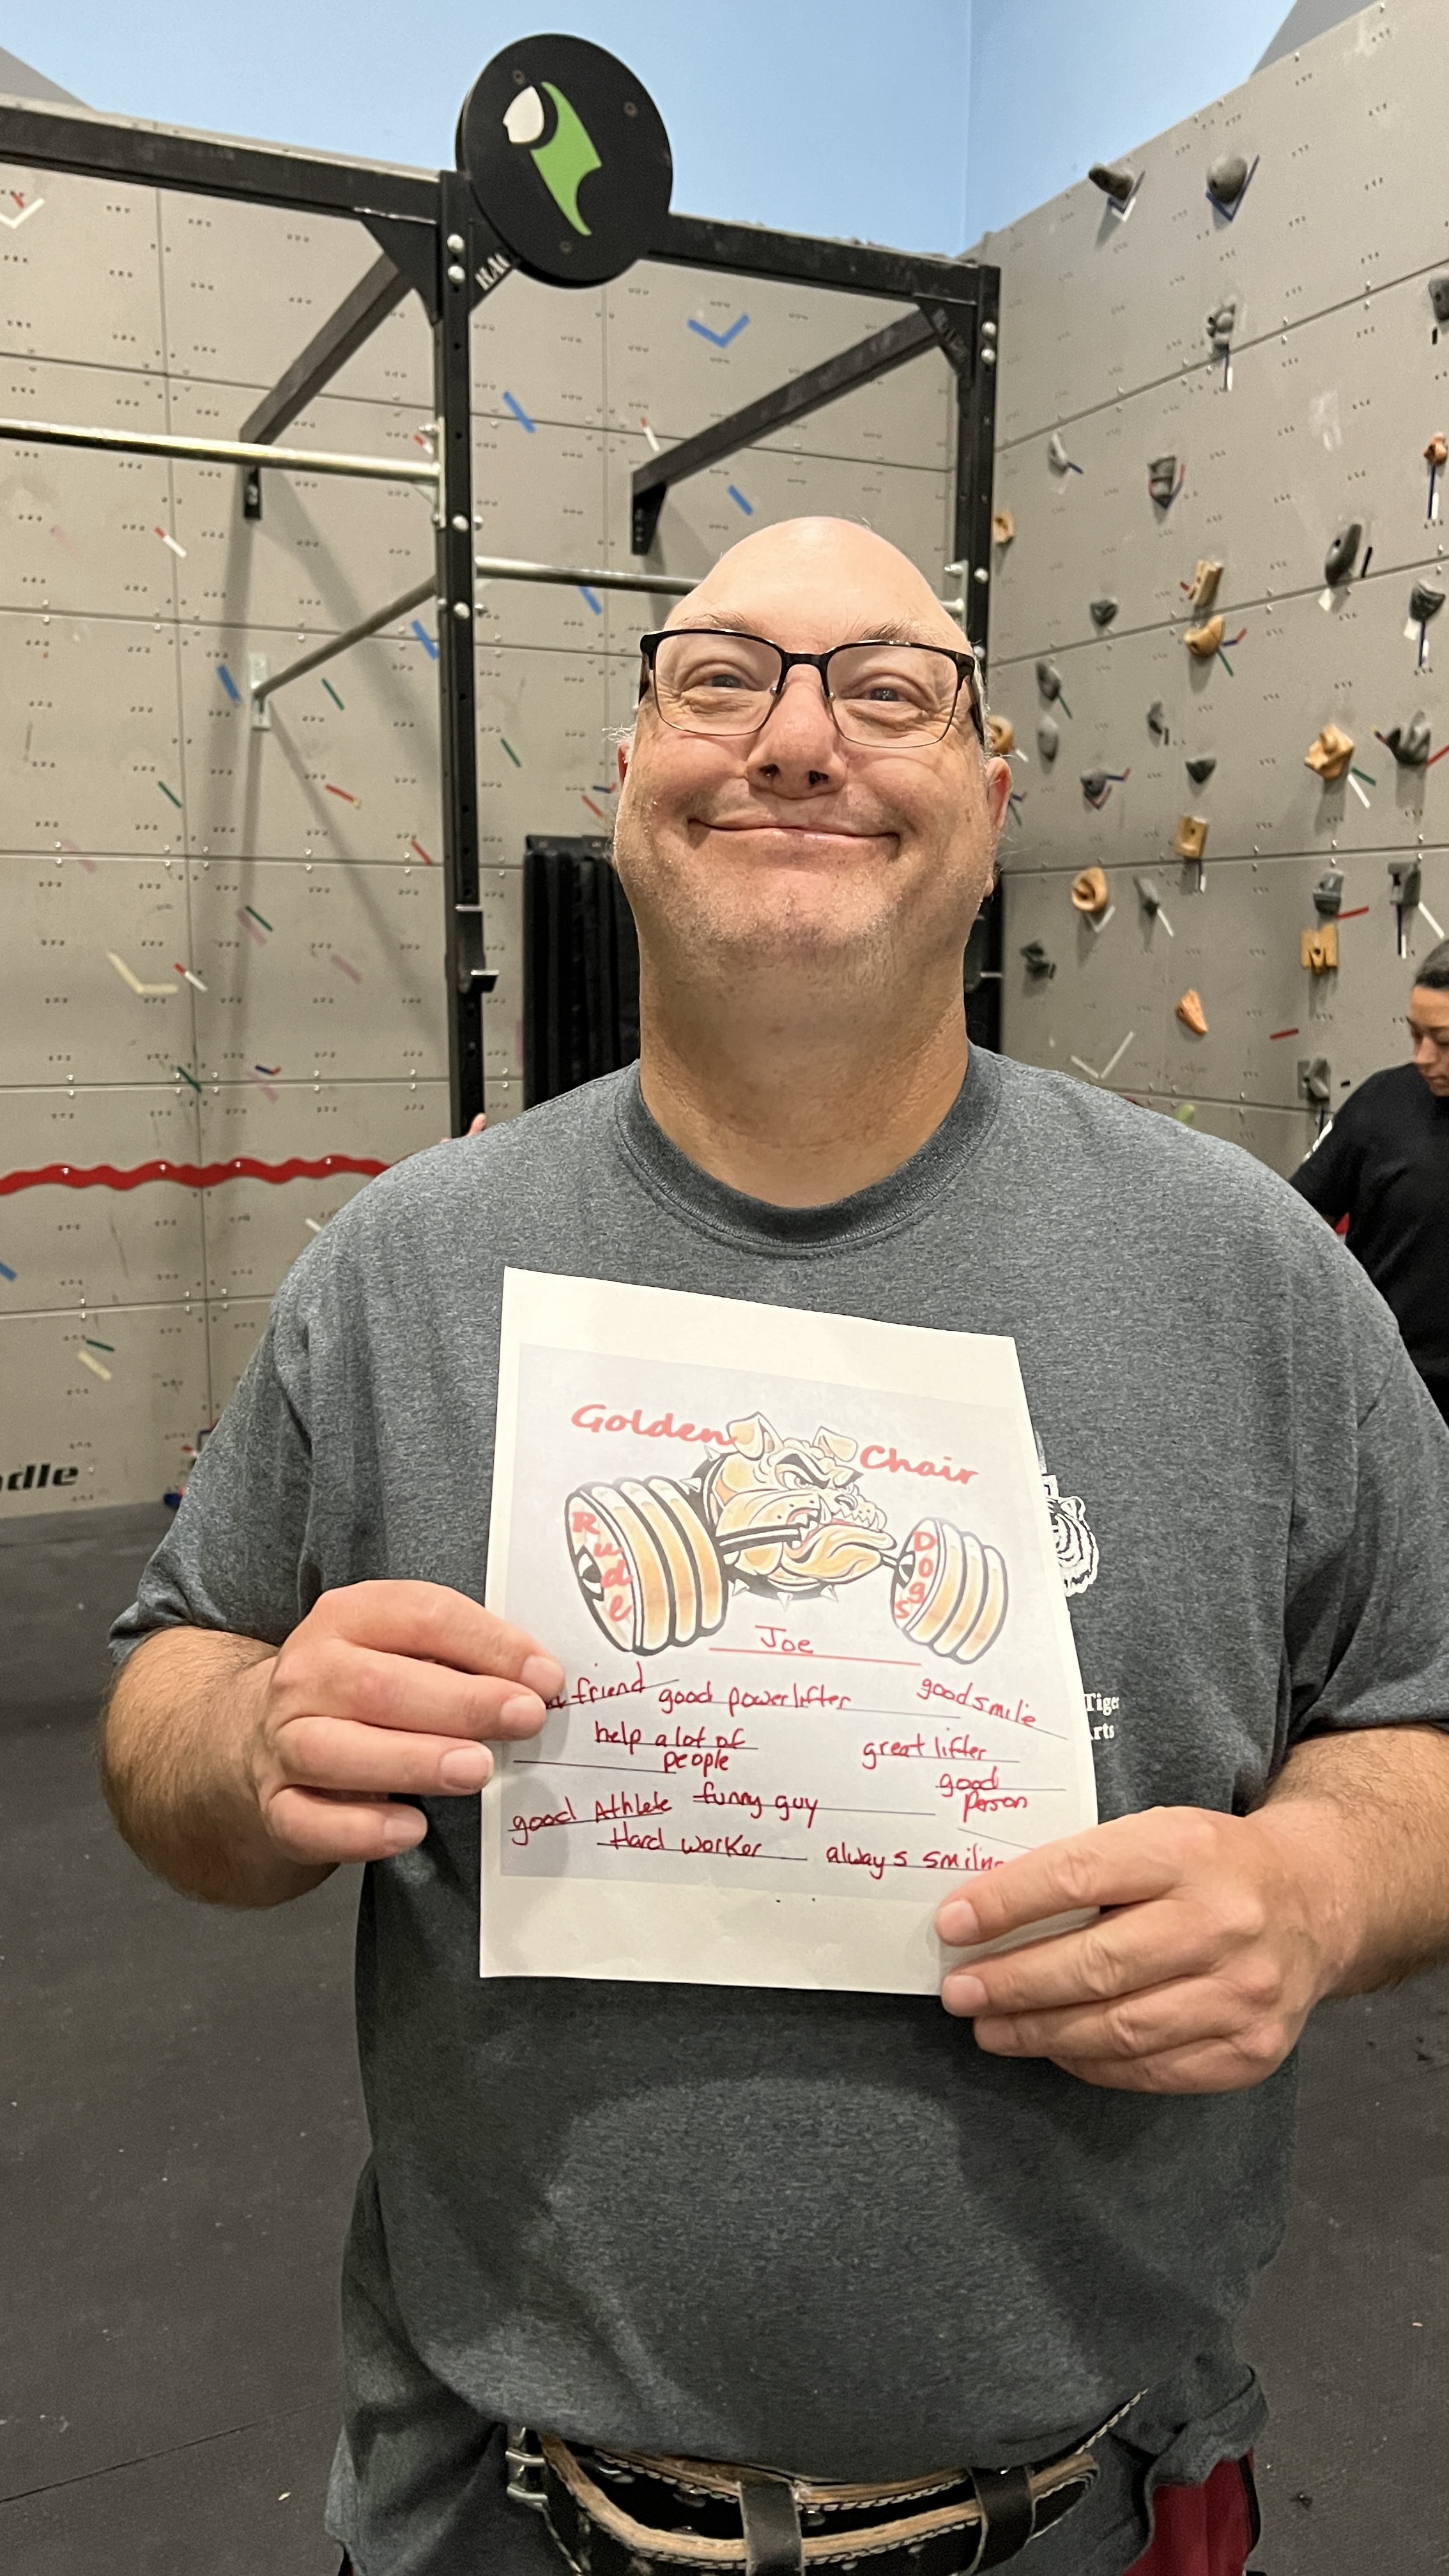 Golden Chair
Rude Dogs
Joe
friend good powerlifter good smile
help a lot of people great lifter
good person
good Athlete funny guy
Hard worker always smiling
Tige
Arts
dle